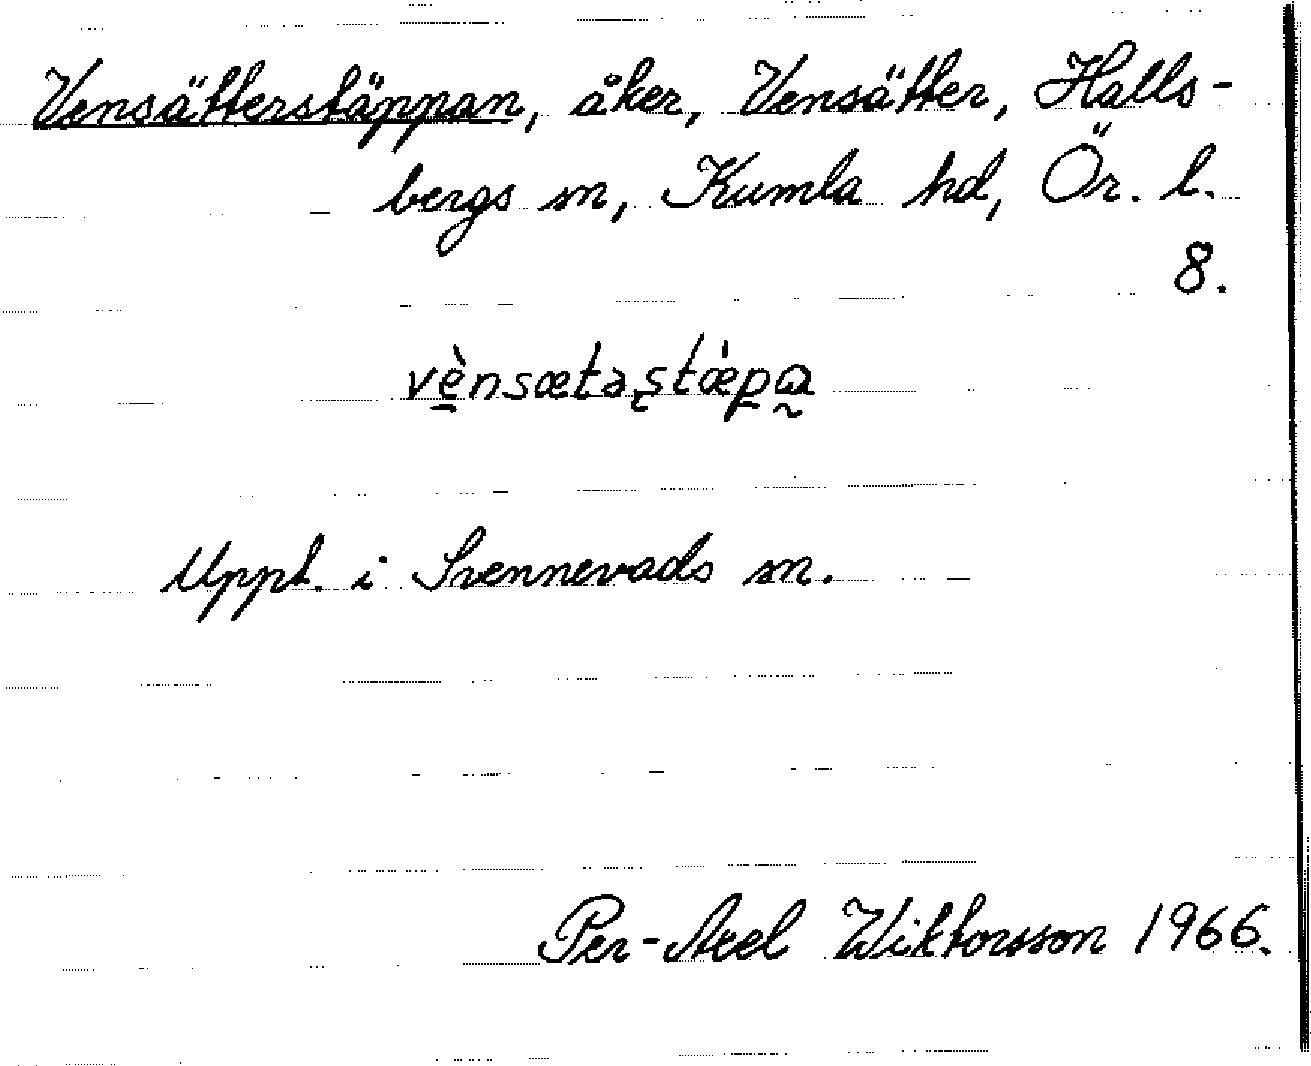 Vensätterstäppan, åker, Vensätter, Halls-
bergs sn, Kumla hd, Ör. l.
8.
vè̱nsætaʂtæ̀p̱a̰
Uppt. i Svennevads sn.
Per-Axel Wiktorsson 1966.